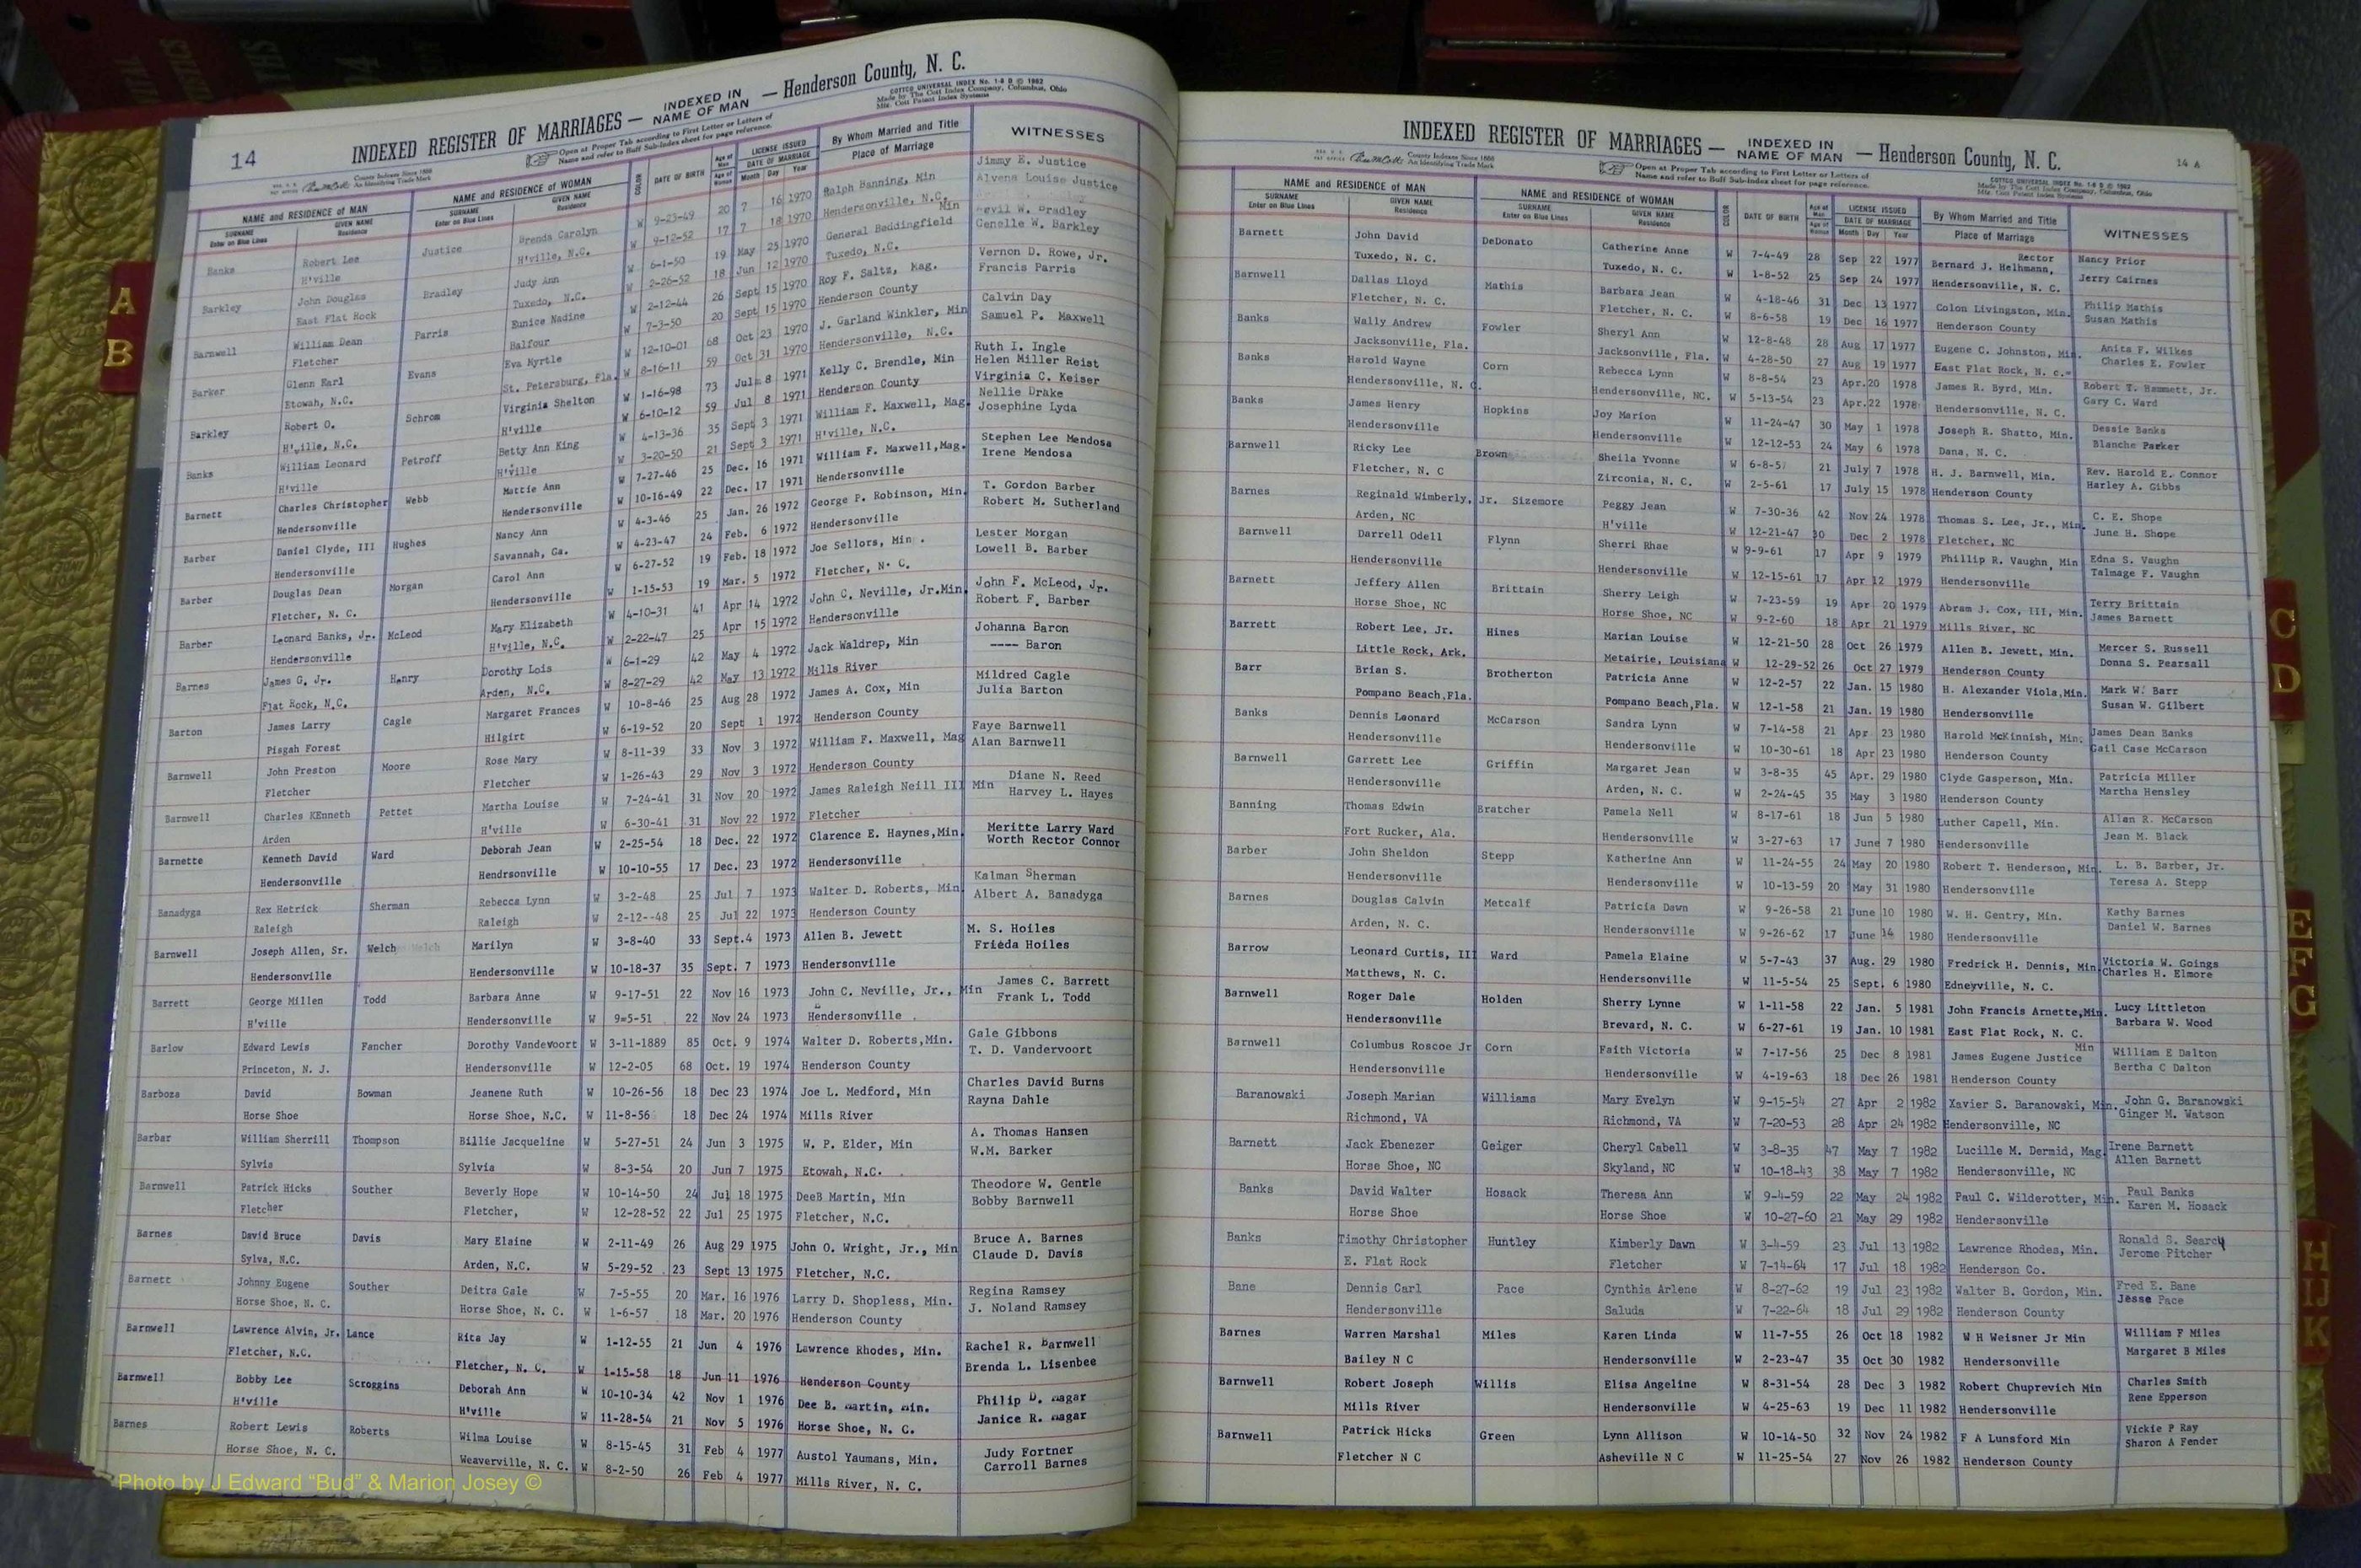 14
INDEXED REGISTER OF MARRIAGES — INDEXED IN NAME OF MAN — Henderson County, N. C.
Open at Proper Tab according to First Letter or Letters of
Name and refer to Buff Sub-Index sheet for page reference.
COTTCO UNIVERSAL INDEX No. 1-8 D © 1982
Made by The Cott Index Company, Columbus, Ohio
Mfr. Cott Patent Index Systems
County Indexes Since 1888
An Identifying Trade Mark
NAME and RESIDENCE OF MAN NAME and RESIDENCE OF WOMAN COLOR DATE OF BIRTH Age of Man LICENSE ISSUED By Whom Married and Title WITNESSES
SURNAME GIVEN NAME SURNAME GIVEN NAME Age of Woman DATE OF MARRIAGE Place of Marriage
Enter on Blue Lines Residence Enter on Blue Lines Residence Month Day Year
Banks Robert Lee Justice Brenda Carolyn W 9-23-49 20 7 16 1970 Ralph Banning, Min Jimmy E. Justice
H'ville H'ville, N.C. W 9-12-52 17 7 18 1970 Hendersonville, N.C. Alvena Louise Justice
Barkley John Douglas Bradley Judy Ann W 6-1-50 19 May 25 1970 General Beddingfield Min W. Bradley
East Flat Rock Tuxedo, N.C. W 2-26-52 18 Jun 12 1970 Tuxedo, N.C. Genelle W. Barkley
Barnwell William Dean Parris Eunice Nadine W 2-12-44 26 Sept 15 1970 Roy F. Saltz, Mag. Vernon D. Rowe, Jr.
Fletcher Balfour W 7-3-50 20 Sept 15 1970 Henderson County Francis Parris
Barker Glenn Earl Evans Eva Myrtle W 12-10-01 68 Oct 23 1970 J. Garland Winkler, Min Calvin Day
Etowah, N.C. St. Petersburg, Fla. W 8-16-11 59 Oct 31 1970 Hendersonville, N.C. Samuel P. Maxwell
Barkley Robert O. Schrom Virginia Shelton W 1-16-98 73 Jul 8 1971 Kelly C. Brendle, Min Ruth I. Ingle
Helen Miller Reist
H'ville, N.C. H'ville W 6-10-12 59 Jul 8 1971 Henderson County Virginia C. Keiser
Banks William Leonard Petroff Betty Ann King W 4-13-36 35 Sept 3 1971 William F. Maxwell, Mag. Nellie Drake
H'ville H'ville W 3-20-50 21 Sept 3 1971 H'ville, N.C. Josephine Lyda
Barnett Charles Christopher Webb Mattie Ann W 7-27-46 25 Dec. 16 1971 William F. Maxwell,Mag. Stephen Lee Mendosa
Hendersonville Hendersonville W 10-16-49 22 Dec. 17 1971 Hendersonville Irene Mendosa
Barber Daniel Clyde, III Hughes Nancy Ann W 4-3-46 25 Jan. 26 1972 George P. Robinson, Min. T. Gordon Barber
Hendersonville Savannah, Ga. W 4-23-47 24 Feb. 6 1972 Hendersonville Robert M. Sutherland
Barber Douglas Dean Morgan Carol Ann W 6-27-52 19 Feb. 18 1972 Joe Sellors, Min. Lester Morgan
Fletcher, N. C. Hendersonville W 1-15-53 19 Mar. 5 1972 Fletcher, N. C. Lowell B. Barber
Barber Leonard Banks, Jr. McLeod Mary Elizabeth W 4-10-31 41 Apr 14 1972 John C. Neville, Jr.Min. John F. McLeod, Jr.
Hendersonville H'ville, N.C. W 2-22-47 25 Apr 15 1972 Hendersonville Robert F. Barber
Barnes James G. Jr. Henry Dorothy Lois W 6-1-29 42 May 4 1972 Jack Waldrep, Min Johanna Baron
Flat Rock, N.C. Arden, N.C. W 8-27-29 42 May 13 1972 Mills River ---- Baron
Barton James Larry Cagle Margaret Frances W 10-8-46 25 Aug 28 1972 James A. Cox, Min Mildred Cagle
Pisgah Forest Hilgirt W 6-19-52 20 Sept 1 1972 Henderson County Julia Barton
Barnwell John Preston Moore Rose Mary W 8-11-39 33 Nov 3 1972 William F. Maxwell, Mag Faye Barnwell
Fletcher Fletcher W 1-26-43 29 Nov 3 1972 Henderson County Alan Barnwell
Barnwell Charles KEnneth Pettet Martha Louise W 7-24-41 31 Nov 20 1972 James Raleigh Neill III Min Diane N. Reed
Arden H'ville W 6-30-41 31 Nov 22 1972 Fletcher Harvey L. Hayes
Barnette Kenneth David Ward Deborah Jean W 2-25-54 18 Dec. 22 1972 Clarence E. Haynes,Min. Meritte Larry Ward
Hendersonville Hendrsonville W 10-10-55 17 Dec. 23 1972 Hendersonville Worth Rector Connor
Banadyga Rex Hetrick Sherman Rebecca Lynn W 3-2-48 25 Jul 7 1973 Walter D. Roberts, Min Kalman Sherman
Raleigh Raleigh W 2-12--48 25 Jul 22 1973 Henderson County Albert A. Banadyga
Barnwell Joseph Allen, Sr. Welch Marilyn W 3-8-40 33 Sept.4 1973 Allen B. Jewett M. S. Hoiles
Hendersonville Hendersonville W 10-18-37 35 Sept. 7 1973 Hendersonville Frieda Hoiles
Barrett George Millen Todd Barbara Anne W 9-17-51 22 Nov 16 1973 John C. Neville, Jr., Min James C. Barrett
H'ville Hendersonville W 9=5-51 22 Nov 24 1973 Hendersonville Frank L. Todd
Barlow Edward Lewis Fancher Dorothy Vandevoort W 3-11-1889 85 Oct. 9 1974 Walter D. Roberts,Min. Gale Gibbons
Princeton, N. J. Hendersonville W 12-2-05 68 Oct. 19 1974 Henderson County T. D. Vandervoort
Barboza David Bowman Jeanene Ruth W 10-26-56 18 Dec 23 1974 Joe L. Medford, Min Charles David Burns
Horse Shoe Horse Shoe, N.C. W 11-8-56 18 Dec 24 1974 Mills River Rayna Dahle
Barbar William Sherrill Thompson Billie Jacqueline W 5-27-51 24 Jun 3 1975 W. P. Elder, Min A. Thomas Hansen
Sylvia Sylvia W 8-3-54 20 Jun 7 1975 Etowah, N.C. W.M. Barker
Barnwell Patrick Hicks Souther Beverly Hope W 10-14-50 24 Jul 18 1975 DeeB Martin, Min Theodore W. Gentle
Fletcher Fletcher, W 12-28-52 22 Jul 25 1975 Fletcher, N.C. Bobby Barnwell
Barnes David Bruce Davis Mary Elaine W 2-11-49 26 Aug 29 1975 John O. Wright, Jr., Min Bruce A. Barnes
Sylva, N.C. Arden, N.C. W 5-29-52 23 Sept 13 1975 Fletcher, N.C. Claude D. Davis
Barnett Johnny Eugene Souther Deitra Gale W 7-5-55 20 Mar. 16 1976 Larry D. Shopless, Min. Regina Ramsey
Horse Shoe, N. C. Horse Shoe, N. C. W 1-6-57 18 Mar. 20 1976 Henderson County J. Noland Ramsey
Barnwell Lawrence Alvin, Jr. Lance Rita Jay W 1-12-55 21 Jun 4 1976 Lawrence Rhodes, Min. Rachel R. Barnwell
Fletcher, N.C. Fletcher, N. C. W 1-15-58 18 Jun 11 1976 Henderson County Brenda L. Lisenbee
Barnwell Bobby Lee Scroggins Deborah Ann W 10-10-34 42 Nov 1 1976 Dee B. Martin, Min. Philip D. Hagar
H'ville H'ville W 11-28-54 21 Nov 5 1976 Horse Shoe, N. C. Janice R. Hagar
Barnes Robert Lewis Roberts Wilma Louise W 8-15-45 31 Feb 4 1977 Austol Yaumans, Min. Judy Fortner
Horse Shoe, N. C. Weaverville, N. C. W 8-2-50 26 Feb 4 1977 Mills River, N. C. Carroll Barnes
14 A
INDEXED REGISTER OF MARRIAGES — INDEXED IN NAME OF MAN — Henderson County, N. C.
County Indexes Since 1888
An Identifying Trade Mark
Open at Proper Tab according to First Letter or Letters of
Name and refer to Buff Sub-Index sheet for page reference.
COTTCO UNIVERSAL INDEX No. 1-8 D © 1982
Made by The Cott Index Company, Columbus, Ohio
Mfr. Cott Patent Index Systems
NAME and RESIDENCE OF MAN NAME and RESIDENCE OF WOMAN COLOR DATE OF BIRTH Age of Man LICENSE ISSUED By Whom Married and Title WITNESSES
SURNAME GIVEN NAME SURNAME GIVEN NAME Age of Woman DATE OF MARRIAGE Place of Marriage
Enter on Blue Lines Residence Enter on Blue Lines Residence Month Day Year
Barnett John David DeDonato Catherine Anne W 7-4-49 28 Sep 22 1977 Bernard J. Helhmann, Rector Nancy Prior
Tuxedo, N. C. Tuxedo, N. C. W 1-8-52 25 Sep 24 1977 Hendersonville, N. C. Jerry Cairnes
Barnwell Dallas Lloyd Mathis Barbara Jean W 4-18-46 31 Dec 13 1977 Colon Livingston, Min. Philip Mathis
Fletcher, N. C. Fletcher, N. C. W 8-6-58 19 Dec 16 1977 Henderson County Susan Mathis
Banks Wally Andrew Fowler Sheryl Ann W 12-8-48 28 Aug 17 1977 Eugene C. Johnston, Min. Anita F. Wilkes
Jacksonville, Fla. Jacksonville, Fla. W 4-28-50 27 Aug 19 1977 East Flat Rock, N. C. Charles E. Fowler
Banks Harold Wayne Corn Rebecca Lynn W 8-8-54 23 Apr.20 1978 James R. Byrd, Min. Robert T. Hammett, Jr.
Hendersonville, N. C. Hendersonville, NC. W 5-13-54 23 Apr.22 1978 Hendersonville, N. C. Gary C. Ward
Banks James Henry Hopkins Joy Marion W 11-24-47 30 May 1 1978 Joseph R. Shatto, Min. Dessie Banks
Hendersonville Hendersonville W 12-12-53 24 May 6 1978 Dana, N. C. Blanche Parker
Barnwell Ricky Lee Brown Sheila Yvonne W 6-8-57 21 July 7 1978 H. J. Barnwell, Min. Rev. Harold E. Connor
Fletcher, N. C Zirconia, N. C. W 2-5-61 17 July 15 1978 Henderson County Harley A. Gibbs
Barnes Reginald Wimberly, Jr. Sizemore Peggy Jean W 7-30-36 42 Nov 24 1978 Thomas S. Lee, Jr., Min. C. E. Shope
Arden, NC H'ville W 12-21-47 30 Dec 2 1978 Fletcher, NC June H. Shope
Barnwell Darrell Odell Flynn Sherri Rhae W 9-9-61 17 Apr 9 1979 Phillip R. Vaughn, Min Edna S. Vaughn
Hendersonville Hendersonville W 12-15-61 17 Apr 12 1979 Hendersonville Talmage F. Vaughn
Barnett Jeffery Allen Brittain Sherry Leigh W 7-23-59 19 Apr 20 1979 Abram J. Cox, III, Min. Terry Brittain
Horse Shoe, NC Horse Shoe, NC W 9-2-60 18 Apr 21 1979 Mills River, NC James Barnett
Barrett Robert Lee, Jr. Hines Marian Louise W 12-21-50 28 Oct 26 1979 Allen B. Jewett, Min. Mercer S. Russell
Little Rock, Ark. Metairie, Louisiana W 12-29-52 26 Oct 27 1979 Henderson County Donna S. Pearsall
Barr Brian S. Brotherton Patricia Anne W 12-2-57 22 Jan. 15 1980 H. Alexander Viola,Min. Mark W. Barr
Pompano Beach,Fla. Pompano Beach,Fla. W 12-1-58 21 Jan. 19 1980 Hendersonville Susan W. Gilbert
Banks Dennis Leonard McCarson Sandra Lynn W 7-14-58 21 Apr 23 1980 Harold McKinnish, Min. James Dean Banks
Hendersonville Hendersonville W 10-30-61 18 Apr 23 1980 Henderson County Gail Case McCarson
Barnwell Garrett Lee Griffin Margaret Jean W 3-8-35 45 Apr. 29 1980 Clyde Gasperson, Min. Patricia Miller
Hendersonville Arden, N. C. W 2-24-45 35 May 3 1980 Henderson County Martha Hensley
Banning Thomas Edwin Bratcher Pamela Nell W 8-17-61 18 Jun 5 1980 Luther Capell, Min. Allan R. McCarson
Fort Rucker, Ala. Hendersonville W 3-27-63 17 June 7 1980 Hendersonville Jean M. Black
Barber John Sheldon Stepp Katherine Ann W 11-24-55 24 May 20 1980 Robert T. Henderson, Min. L. B. Barber, Jr.
Hendersonville Hendersonville W 10-13-59 20 May 31 1980 Hendersonville Teresa A. Stepp
Barnes Douglas Calvin Metcalf Patricia Dawn W 9-26-58 21 June 10 1980 W. H. Gentry, Min. Kathy Barnes
Arden, N. C. Hendersonville W 9-26-62 17 June 14 1980 Hendersonville Daniel W. Barnes
Barrow Leonard Curtis, III Ward Pamela Elaine W 5-7-43 37 Aug. 29 1980 Fredrick H. Dennis, Min. Victoria W. Goings
Matthews, N. C. Hendersonville W 11-5-54 25 Sept. 6 1980 Edneyville, N. C. Charles H. Elmore
Barnwell Roger Dale Holden Sherry Lynne W 1-11-58 22 Jan. 5 1981 John Francis Arnette,Min. Lucy Littleton
Hendersonville Brevard, N. C. W 6-27-61 19 Jan. 10 1981 East Flat Rock, N. C. Barbara W. Wood
Barnwell Columbus Roscoe Jr Corn Faith Victoria W 7-17-56 25 Dec 8 1981 James Eugene Justice Min William E Dalton
Hendersonville Hendersonville W 4-19-63 18 Dec 26 1981 Henderson County Bertha C Dalton
Baranowski Joseph Marian Williams Mary Evelyn W 9-15-54 27 Apr 2 1982 Xavier S. Baranowski, Min. John G. Baranowski
Richmond, VA Richmond, VA W 7-20-53 28 Apr 24 1982 Hendersonville, NC Ginger M. Watson
Barnett Jack Ebenezer Geiger Cheryl Cabell W 3-8-35 47 May 7 1982 Lucille M. Dermid, Mag. Irene Barnett
Horse Shoe, NC Skyland, NC W 10-18-43 38 May 7 1982 Hendersonville, NC Allen Barnett
Banks David Walter Hosack Theresa Ann W 9-4-59 22 May 24 1982 Paul C. Wilderotter, Min. Paul Banks
Horse Shoe Horse Shoe W 10-27-60 21 May 29 1982 Hendersonville Karen M. Hosack
Banks Timothy Christopher Huntley Kimberly Dawn W 3-4-59 23 Jul 13 1982 Lawrence Rhodes, Min. Ronald S. Searcy
E. Flat Rock Fletcher W 7-14-64 17 Jul 18 1982 Henderson Co. Jerome Pitcher
Bane Dennis Carl Pace Cynthia Arlene W 8-27-62 19 Jul 23 1982 Walter B. Gordon, Min. Fred E. Bane
Hendersonville Saluda W 7-22-64 18 Jul 29 1982 Henderson County Jesse Pace
Barnes Warren Marshal Miles Karen Linda W 11-7-55 26 Oct 18 1982 W H Weisner Jr Min William F Miles
Bailey N C Hendersonville W 2-23-47 35 Oct 30 1982 Hendersonville Margaret B Miles
Barnwell Robert Joseph Willis Elisa Angeline W 8-31-54 28 Dec 3 1982 Robert Chuprevich Min Charles Smith
Mills River Hendersonville W 4-25-63 19 Dec 11 1982 Hendersonville Rene Epperson
Barnwell Patrick Hicks Green Lynn Allison W 10-14-50 32 Nov 24 1982 F A Lunsford Min Vickie P Ray
Fletcher N C Asheville N C W 11-25-54 27 Nov 26 1982 Henderson County Sharon A Fender
A
B
C
D
E
F
G
H
IJ
K
Photo by J Edward “Bud” & Marion Josey ©